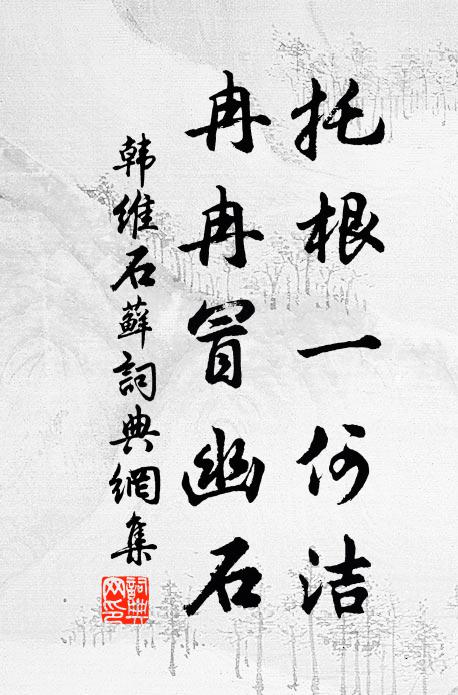 托根一何洁
冉冉冒幽石
韩维石蘚詞典網集
詞典网印